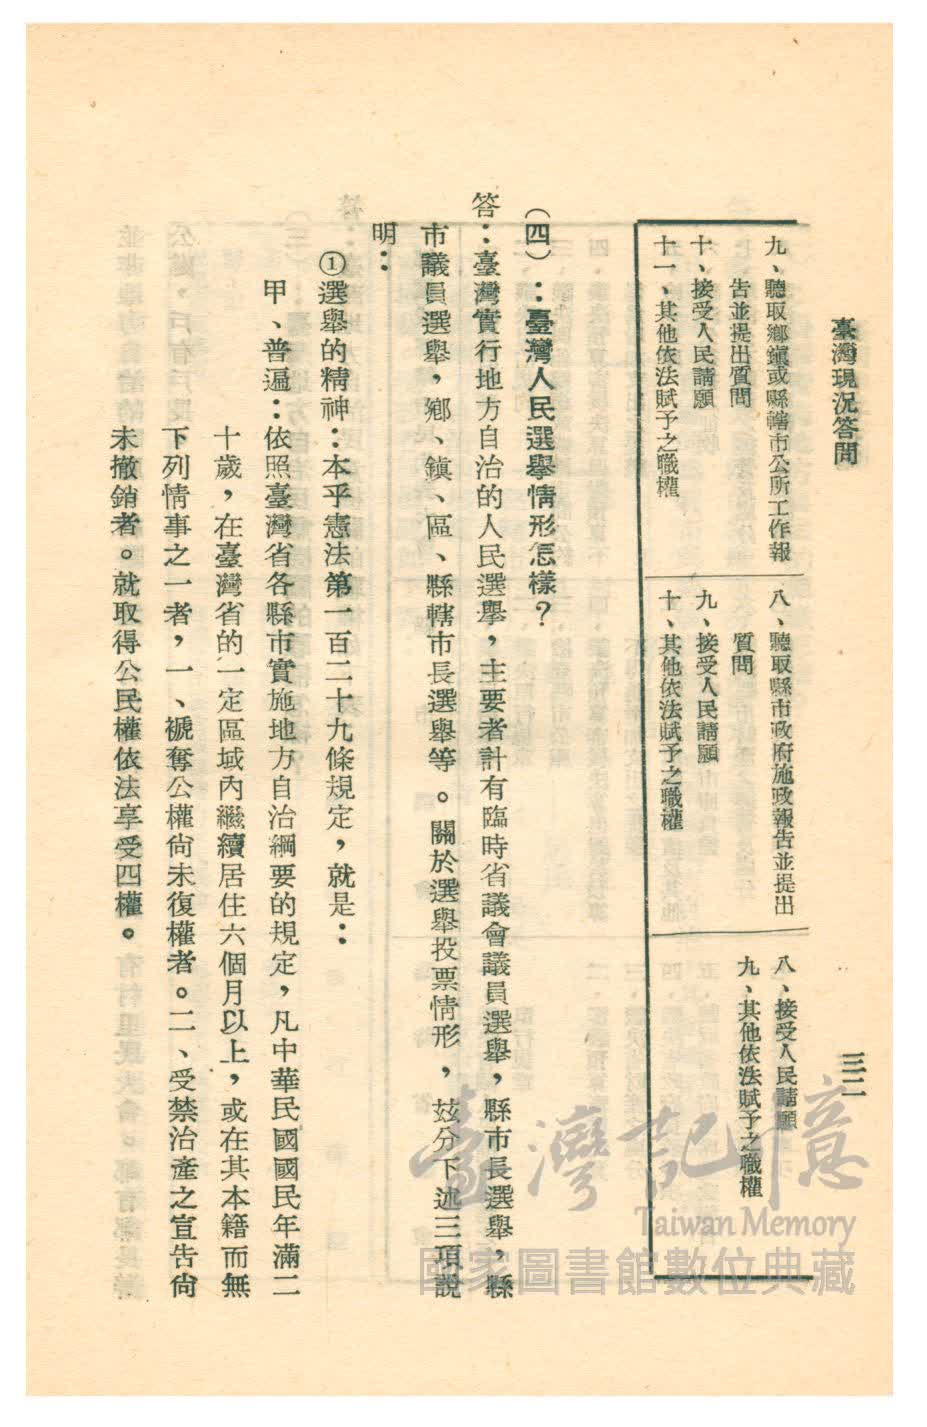 臺灣現況答問
三二
九、聽取鄉鎭或縣轄市公所工作報
告並提出質問
十、接受人民請願
十一、其他依法賦予之職權
八、聽取縣市政府施政報告並提出
質問
九、接受人民請願
十、其他依法賦予之職權
八、接受人民請願
九、其他依法賦予之職權
（四）：臺灣人民選舉情形怎樣？
答：臺灣實行地方自治的人民選舉，主要者計有臨時省議會議員選舉，縣市長選舉，縣
市議員選舉，鄉、鎭、區、縣轄市長選舉等。關於選舉投票情形，玆分下述三項說
明：
①選舉的精神：本乎憲法第一百二十九條規定，就是：
甲、普遍：依照臺灣省各縣市實施地方自治綱要的規定，凡中華民國國民年滿二
十歲，在臺灣省的一定區域內繼續居住六個月以上，或在其本籍而無
下列情事之一者，一、褫奪公權尙未復權者。二、受禁治產之宣告尙
未撤銷者。就取得公民權依法享受四權。
臺灣記憶
Taiwan Memory
國家圖書館數位典藏